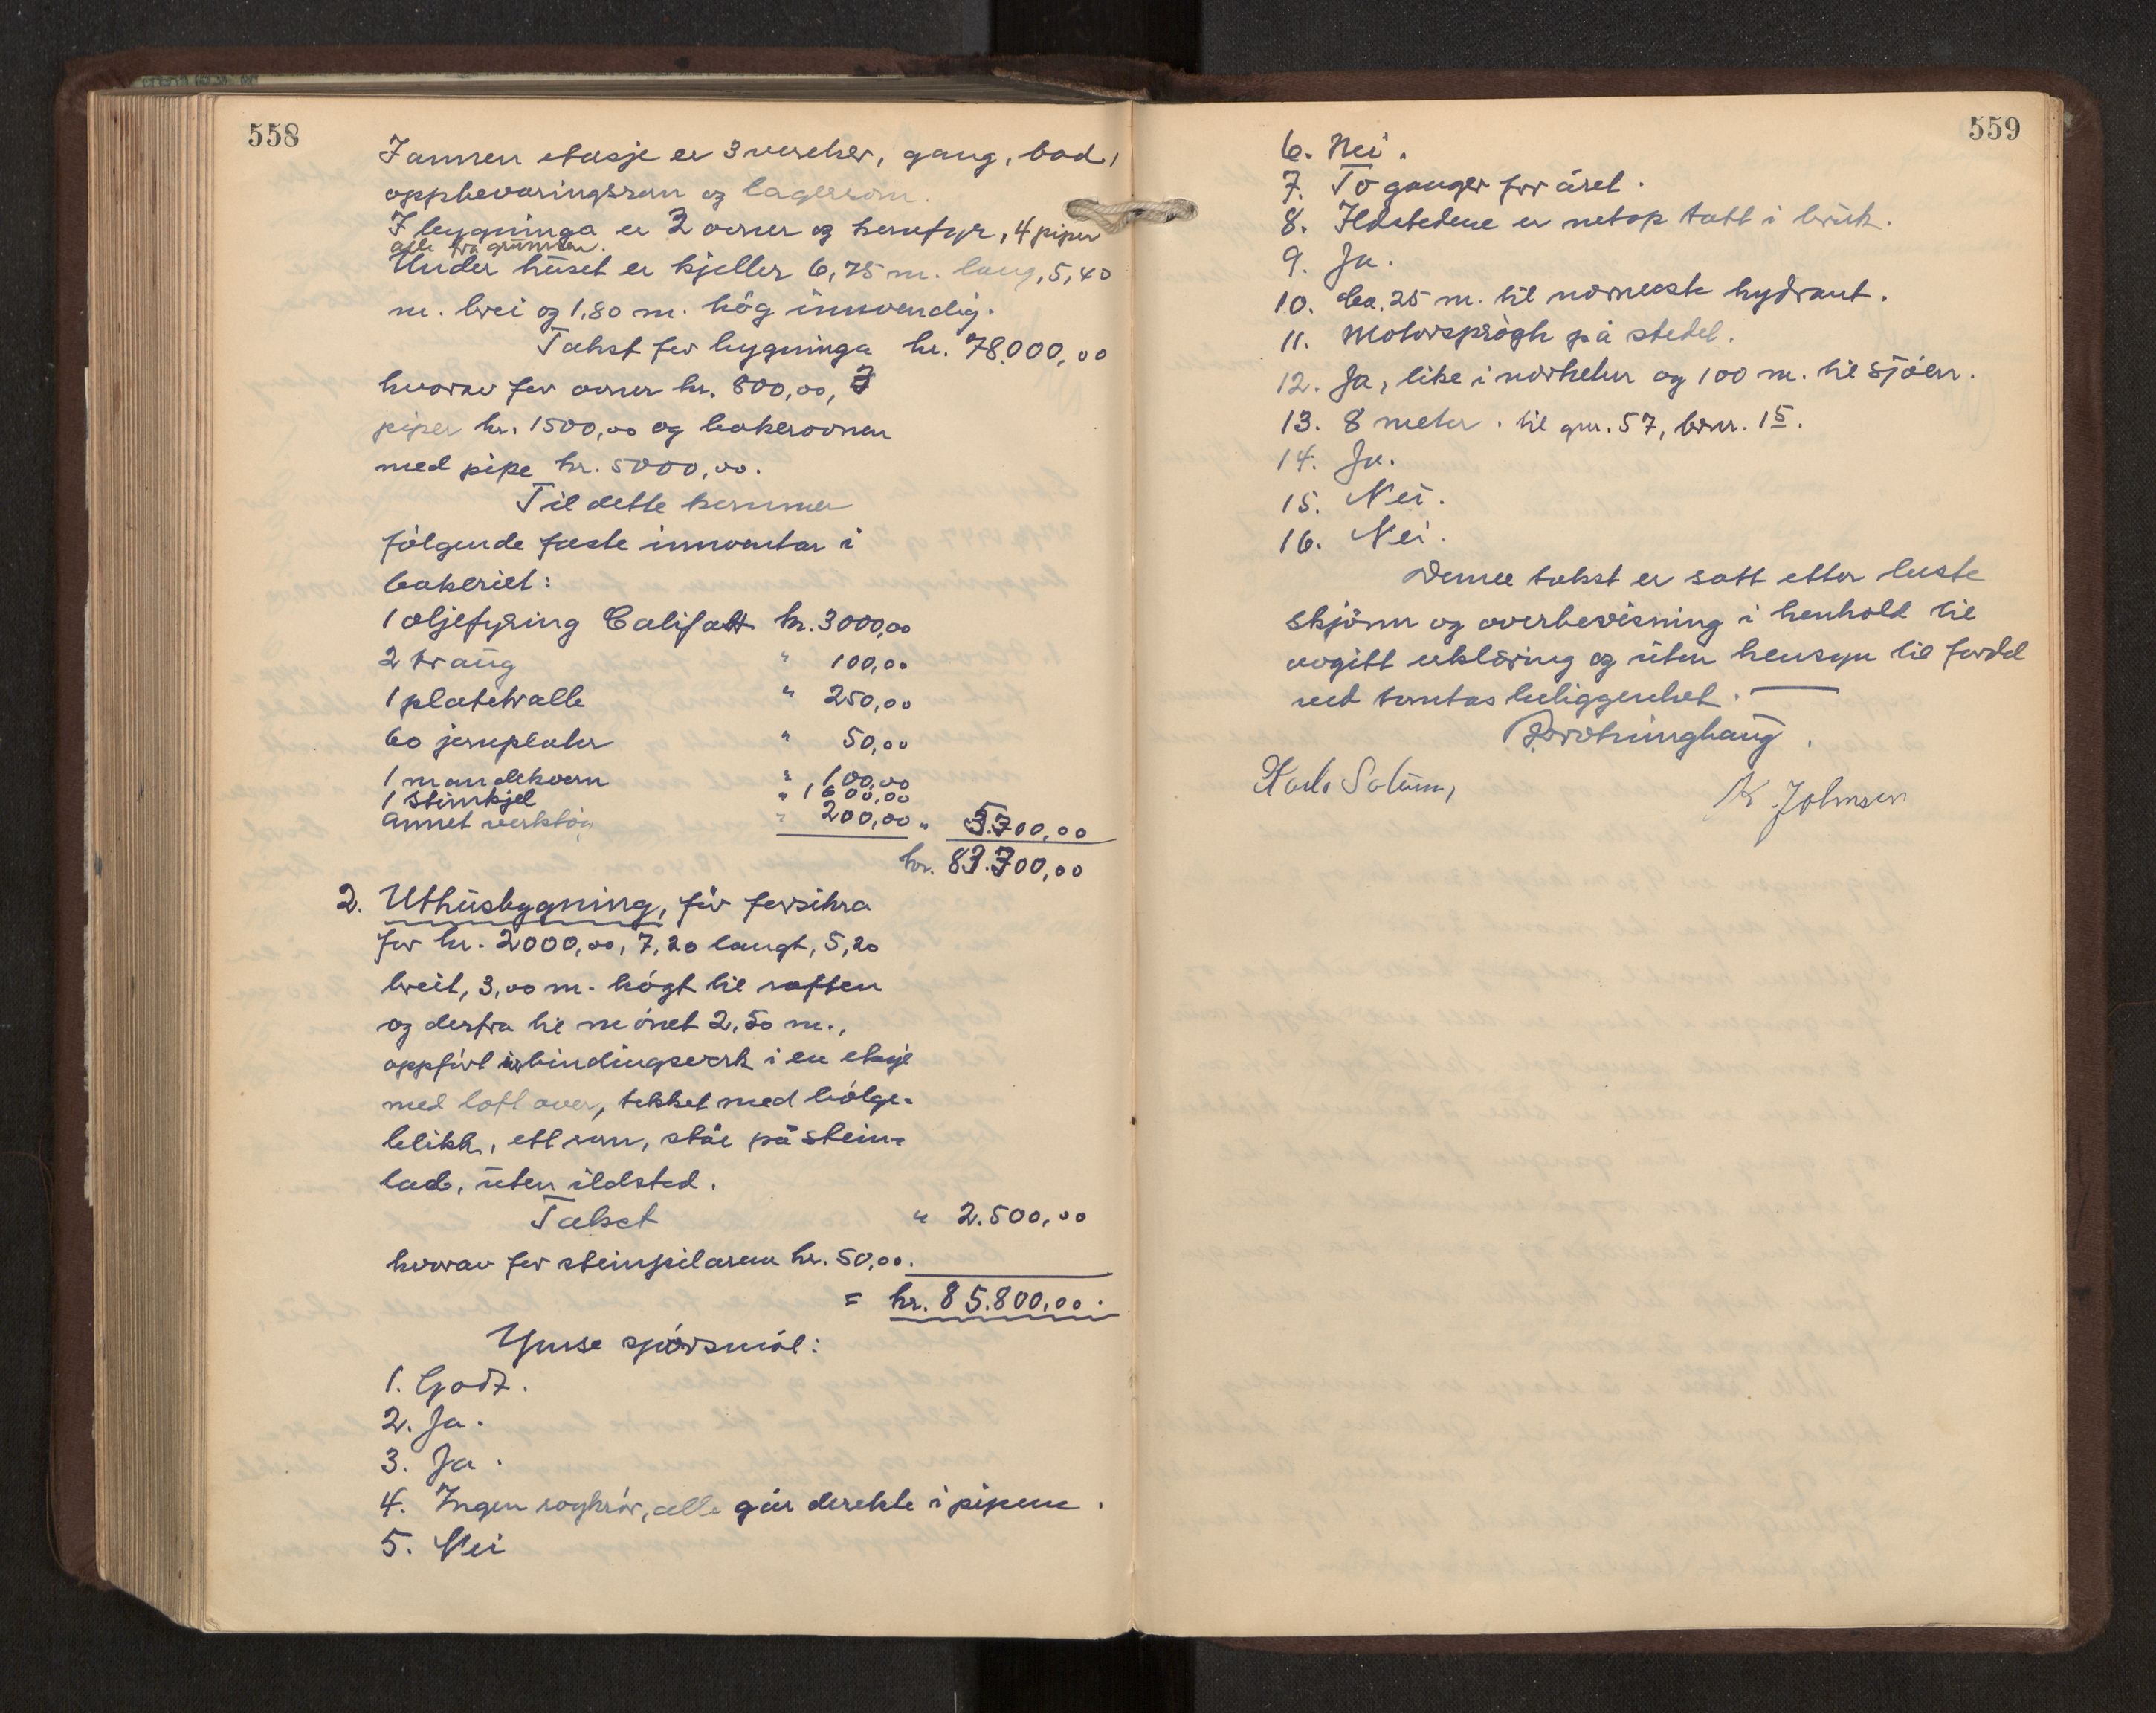 558
I annen etasje er 3 værelser, gang, bad,
oppbevaringsrom og lagerrom.
I bygninga er 3 ovner og komfyr, 4 piper
alle fra grunnen.
Under huset er kjeller 6,75 m. lang, 5,40
m. brei og 1,80 m. høg innvendig.
Takst for bygninga kr. 78.000,00
hvorav for ovner kr. 800,00, 3
piper kr. 1500,00 og bakerovnen
med pipe kr. 5000,00.
Til dette kommer
følgende faste inventar i
bakeriet:
1 oljefyring Califatt kr. 3000,00
2 traug " 100,00
1 platetralle " 250,00
60 jernplater " 50,00
1 mandelkvern " 100,00
1 Stimkjel " 1600,00
Annet verktøy " 200,00 " 5.300,00
kr. 83.300,00
2. Uthusbygning, før forsikra
for kr. 2000,00, 7,20 langt, 5,20
breit, 3,00 m. høgt til raften
og derfra til mønet 2,50 m.,
oppført i bindingsverk i en etasje
med loft over, tekket med bølge-
blikk, ett rom, står på stein-
lad, uten ildsted.
Takst " 2.500,00
hvorav for steinpilarene kr. 50,00.
= kr. 85.800,00.
Ymse spørsmål:
1. Godt.
2. Ja.
3. Ja.
4. Ingen røykrør, alle går direkte i pipene.
5. Nei
559
6. Nei.
7. To ganger for året.
8. Ildstedene er netop tatt i bruk.
9. Ja.
10. Ca. 25 m. til nærmeste hydrant.
11. Motorsprøyte på stedet.
12. Ja, like i nærheten og 100 m. til sjøen.
13. 8 meter. til gnr. 57, bnr. 15.
14. Ja.
15. Nei.
16. Nei.
Denne takst er satt etter beste
skjønn og overbevisning i henhold til
avgitt erklæring og uten hensyn til fordel
ved tomtas beliggenhet.
Dronninghaug.
Karl Solum, K. Johnsen